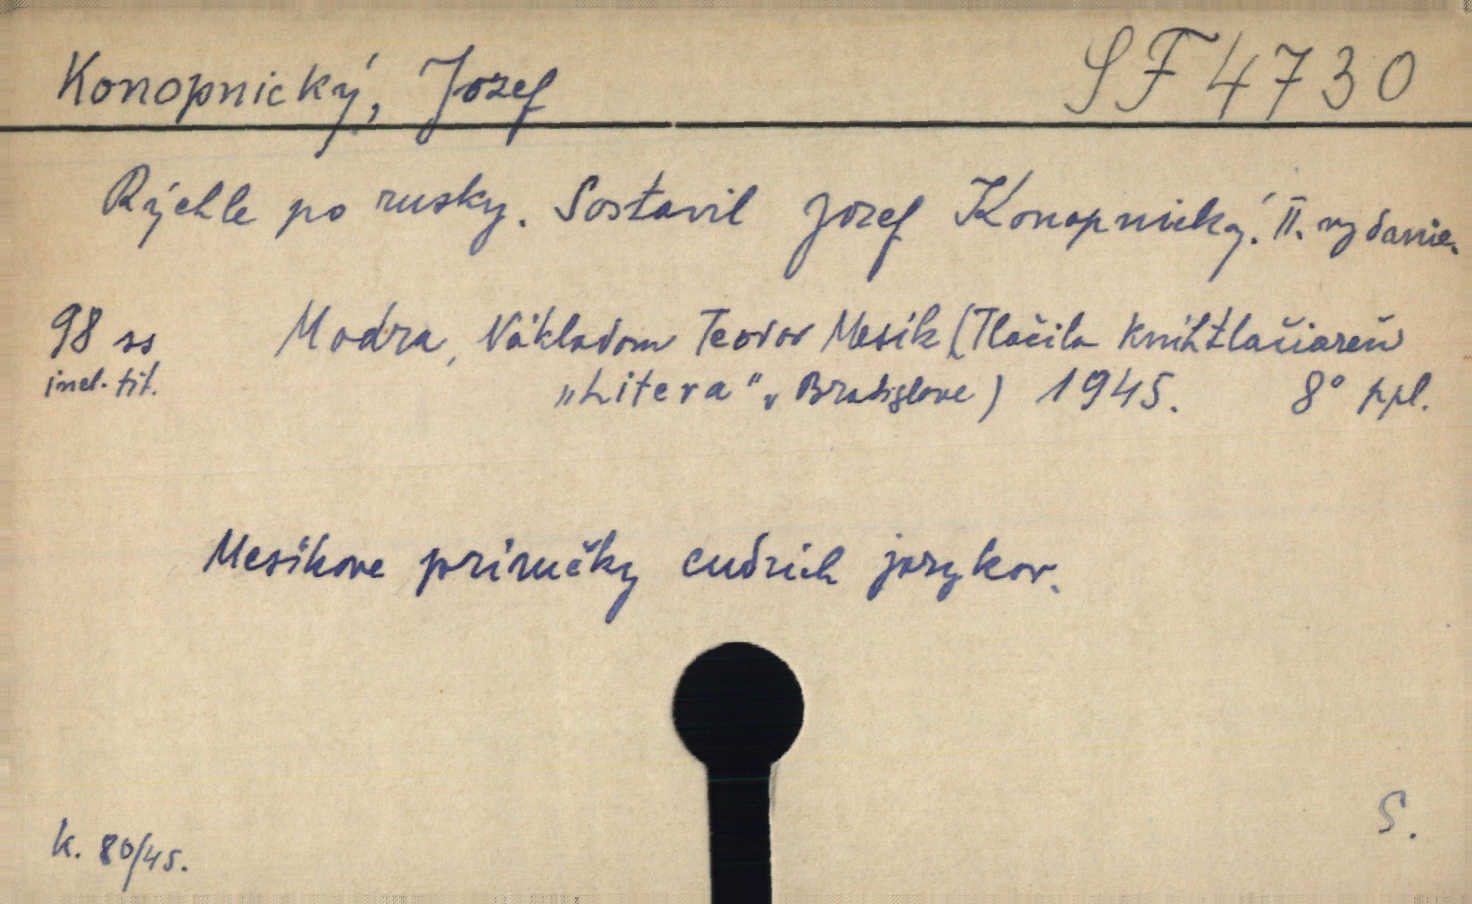 Konopnický, Jozef SF 4730
Rýchle po rusky. Sostavil Jozef Konopnický. II. vydanie.
98 ss Modra, Nákladom Teodor Mesík (Tlačila Kníhtlačiareň
incl. tit. „Litera" v Bratislave) 1945. 8° ppl.
Mesíkove príručky cudzích jazykov.
S.
k. 80/45.